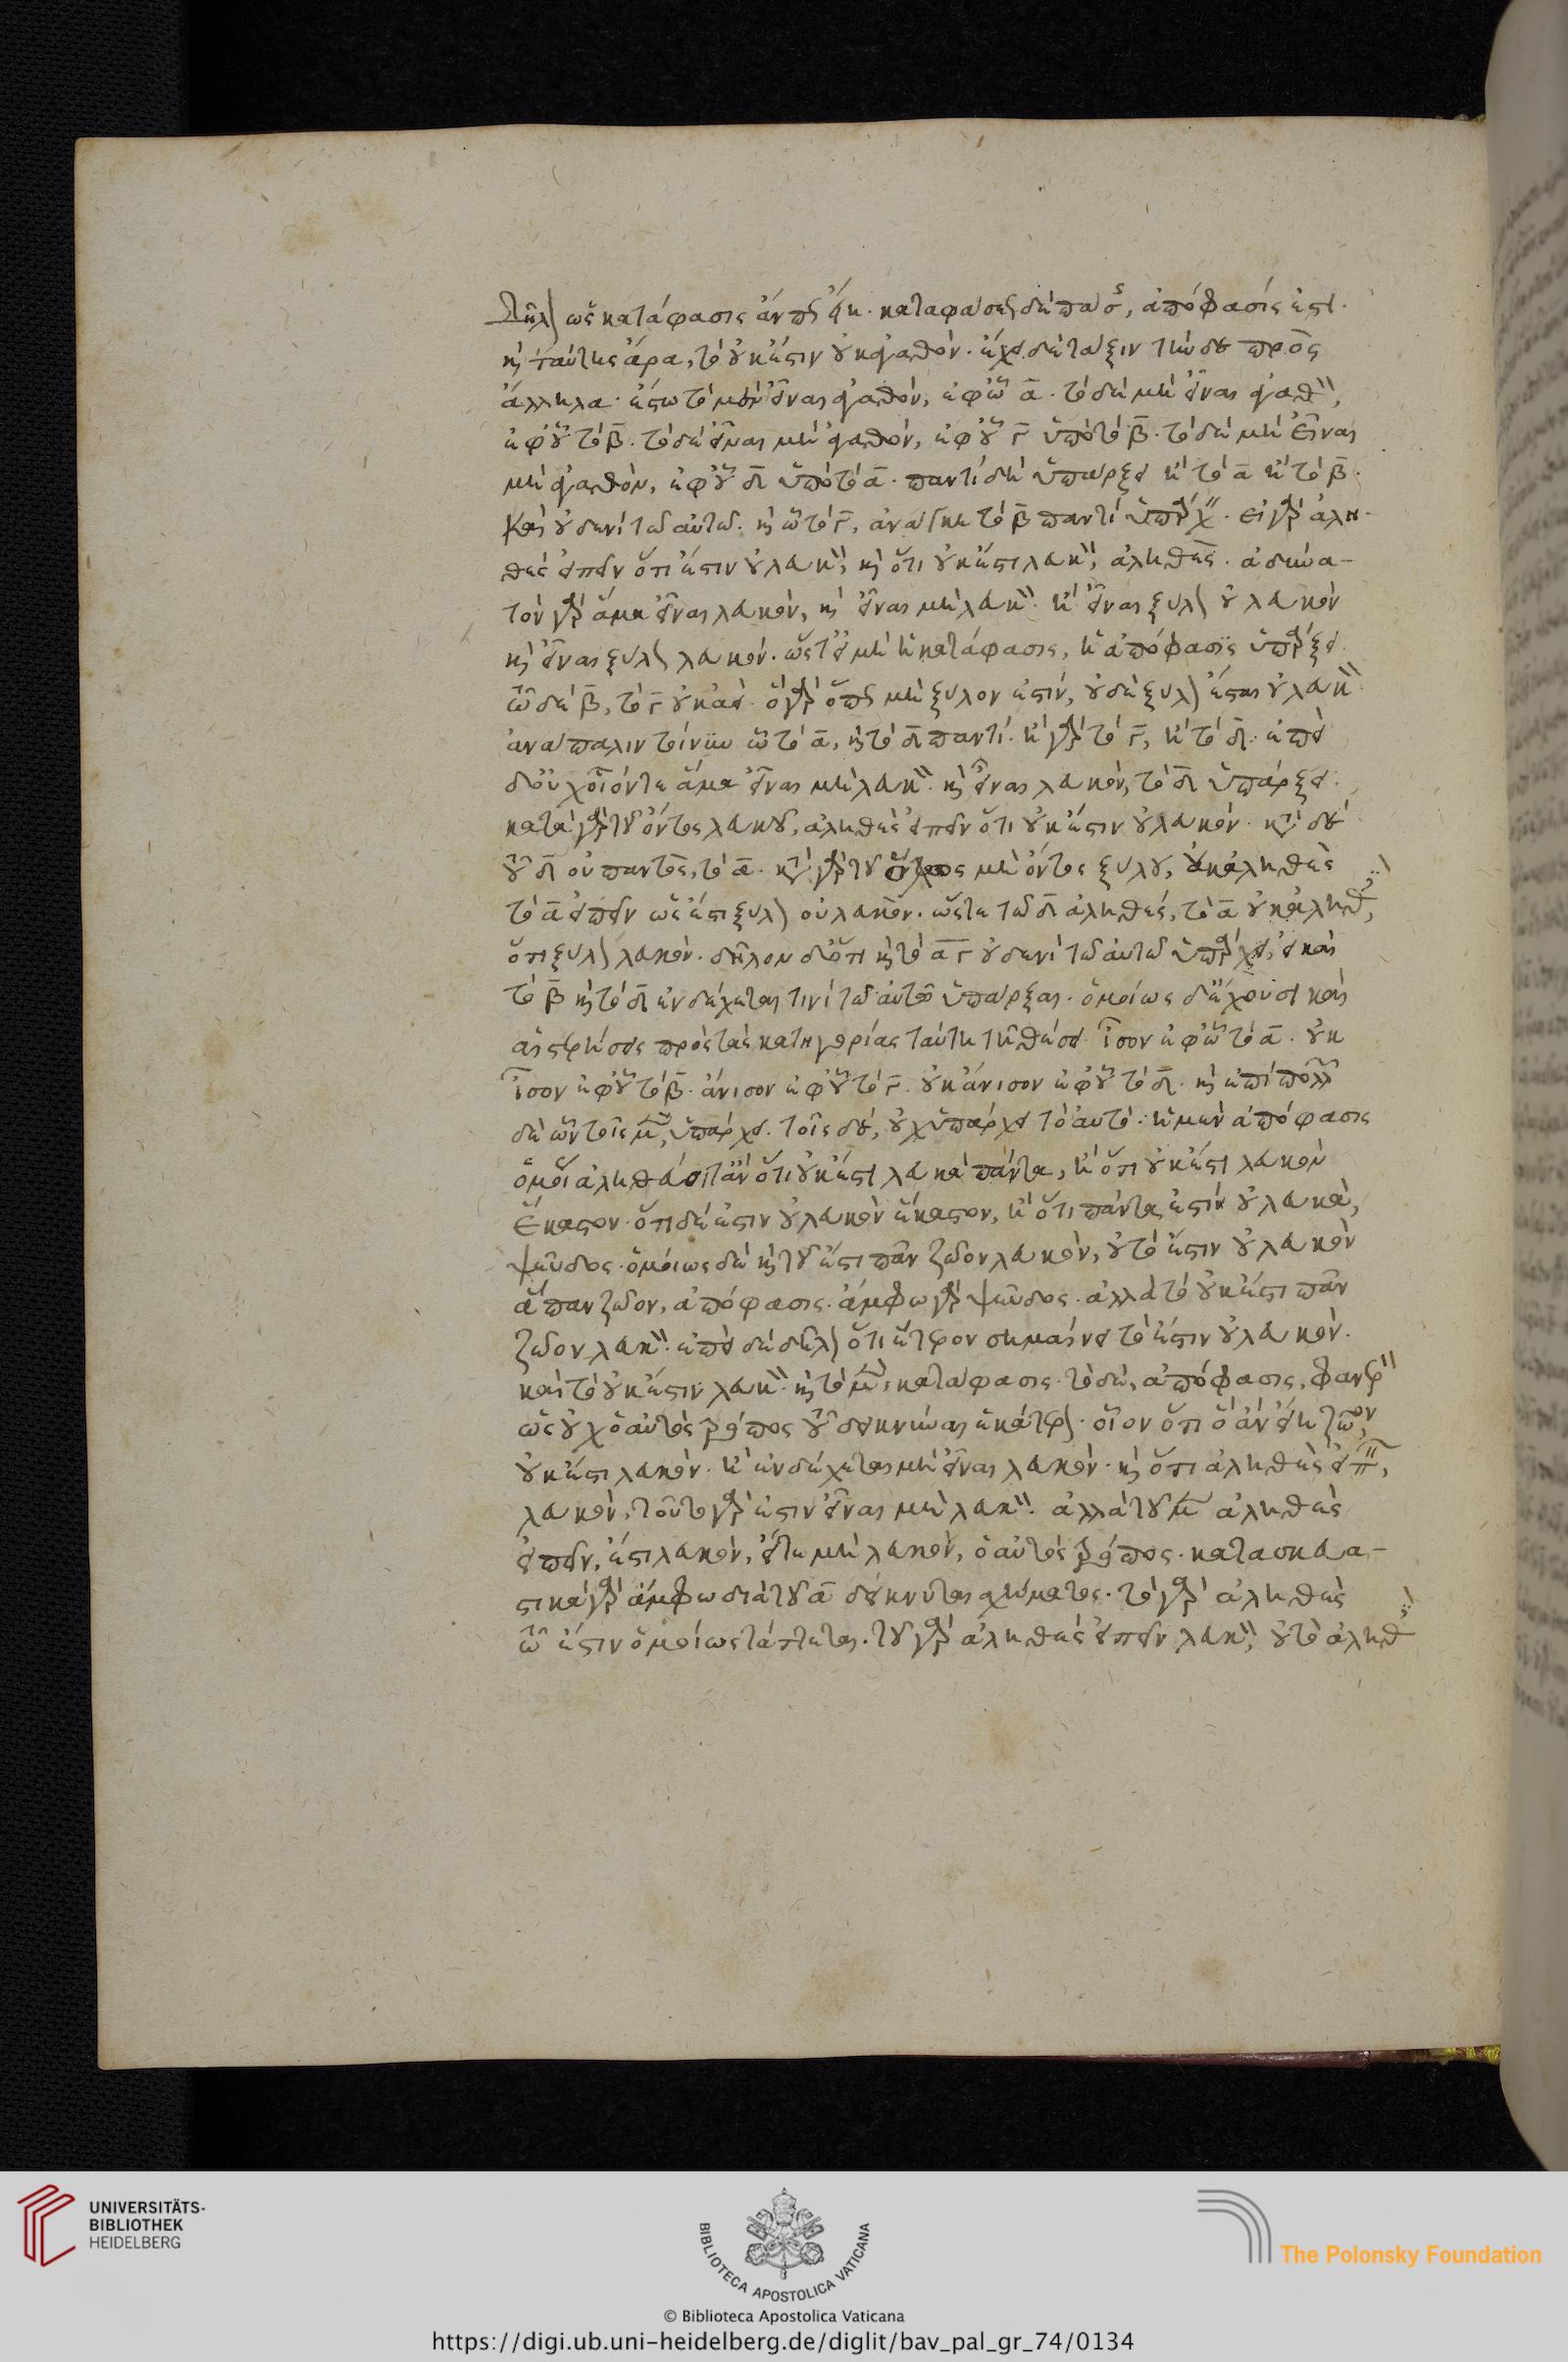 δῆλ ὡς κατάφασις ἄν πς εἴη. καταφάσει δὲ πάσ, ἀπόφασίς ἐστι.
κ ταύτης ἄρα, τὸ οὐκ ἔστιν οὐκ ἀγαθόν. ἔχει δὲ τάξιν τήνδε πρὸς
ἄλληλα. ἔστω τὸ μὲν εἶναι ἀγαθόν, ἐφ ᾧ α. τὸ δὲ μὴ εἶναι ἀγαθ,
ἐφ οὗ τὸ β. τὸ δὲ εἶναι μὴ ἀγαθόν, ἐφ οὗ γ ὑπὸ τὸ β. τὸ δὲ μὴ εἶναι
μὴ ἀγαθὸν, ἐφ οὗ δ ὑπὸ τὸ α. παντὶ δὴ ὑπάρξει ἢ τὸ α ἢ τὸ β.
καὶ οὐδενὶ τῶ αὐτῶ. κ ᾧ τὸ γ, ἀνάγκη τὸ β παντὶ ὑπάρχ. εἰ γὰρ ἀλη-
θὲς εἰπεῖν ὅτι ἔστιν οὐ λευκ, κ ὅτι οὐκ ἔστι λευκ, ἀληθές. ἀδύνα-
τον γὰρ ἅμα εἶναι λευκὸν, κ εἶναι μὴ λευκ. ἢ εἶναι ξύλ οὐ λευκὸν
κ εἶναι ξύλ λευκόν. ὥστ εἰ μὴ ἡ κατάφασις, ἡ ἀπόφασις ὑπάρξει.
ᾧ δὲ β, τὸ γ οὐκ ἀεί. ὃ γὰρ ὅπς μὴ ξύλον ἐστίν, οὐδὲ ξύλ ἔσται οὐ λευκ.
ἀνάπαλιν τοίνυν ᾧ τὸ α, κ τὸ δ παντί. ἢ γὰρ τὸ γ, ἢ τὸ δ. ἐπεὶ
δ οὐχ οἷόντε ἅμα εἶναι μὴ λευκ κ εἶναι λευκόν, τὸ δ ὑπάρξει.
κατὰ γὰρ τοῦ ὄντος λευκοῦ, ἀληθὲς εἰπεῖν ὅτι οὐκ ἔστιν οὐ λευκόν. κτ δὲ
οὗ δ οὐ παντὸς, τὸ α. κτ γὰρ τοῦ ὄντος μὴ ὄντος ξύλου, οὐκ ἀληθὲς
τὸ α εἰπεῖν ὡς ἔστι ξύλ οὐ λευκόν. ὥστε τῶ δ ἀληθές, τὸ α οὐκ ἀληθ,
ὅτι ξύλ λευκόν. δῆλον δ ὅτι κ τὸ α γ οὐδενὶ τῶ αὐτῶ ὑπάρχει, εἰ καὶ
τὸ β κ τὸ δ ἐνδέχεται τινὶ τῶ αὐτῶ ὑπάρξαι. ὁμοίως δ ἔχουσι καὶ
αἱ στερήσεις πρὸς τὰς κατηγορίας ταύτη τῆ θέσει. ἴσον ἐφ ᾧ τὸ α. οὐκ
ἴσον ἐφ οὗ τὸ β. ἄνισον ἐφ οὗ τὸ γ. οὐκ ἄνισον ἐφ οὗ τὸ δ. κ ἐπὶ πολλ
δὲ ὧν τοῖς μ, ὑπάρχει. τοῖς δέ, οὐχ ὑπάρχει τὸ αὐτό. ἡ μὲν ἀπόφασις
ὁμοί ἀληθεύοιτ ἂν ὅτι οὐκ ἔστι λευκὰ πάντα, ἢ ὅτι οὐκ ἔστι λευκὸν
ἕκαστον. ὅτι δέ ἐστιν οὐ λευκὸν ἕκαστον, ἢ ὅτι πάντα ἐστὶν οὐ λευκὰ,
ψεῦδος. ὁμοίως δὲ κ τοῦ ἔστι πᾶν ζῶον λευκὸν, οὐ τὸ ἔστιν οὐ λευκὸν
ἅπαν ζῶον, ἀπόφασις. ἄμφω γὰρ ψεῦδος. ἀλλὰ τὸ οὐκ ἔστι πᾶν
ζῶον λευκ. ἐπεὶ δὲ δῆλ ὅτι ἕτερον σημαίνει τὸ ἔστιν οὐ λευκὸν.
καὶ τὸ οὐκ ἔστιν λευκ. κ τὸ μ, κατάφασις. τὸ δὲ, ἀπόφασις, φανερ
ὡς οὐχ ὁ αὐτὸς τρόπος τοῦ δεικνύναι ἑκάτερ. οἷον ὅτι ὃ ἂν εἴη ζῶον,
οὐκ ἔστι λευκὸν. ἢ ἐνδέχεται μὴ εἶναι λευκὸν. κ ὅτι ἀληθὲς εἰπ,
λευκὸν. τοῦτο γάρ ἐστιν εἶναι μὴ λευκ. ἀλλὰ τοῦ μ ἀληθὲς
εἰπεῖν, ἔστι λευκὸν, εἴτε μὴ λευκὸν, ὁ αὐτὸς τρόπος. κατασκευα-
στικὰ γὰρ ἄμφω διὰ τοῦ α δείκνυται σχήματος. τὸ γὰρ ἀληθὲς
ᾧ ἔστιν ὁμοίως τάττεται. τοῦ γὰρ ἀληθὲς εἰπεῖν λευκ, οὐ τὸ ἀληθ
UNIVERSITÄTS-
BIBLIOTHEK
HEIDELBERG
BIBLIOTECA APOSTOLICA VATICANA
The Polonsky Foundation
© Biblioteca Apostolica Vaticana
https://digi.ub.uni-heidelberg.de/diglit/bav_pal_gr_74/0134